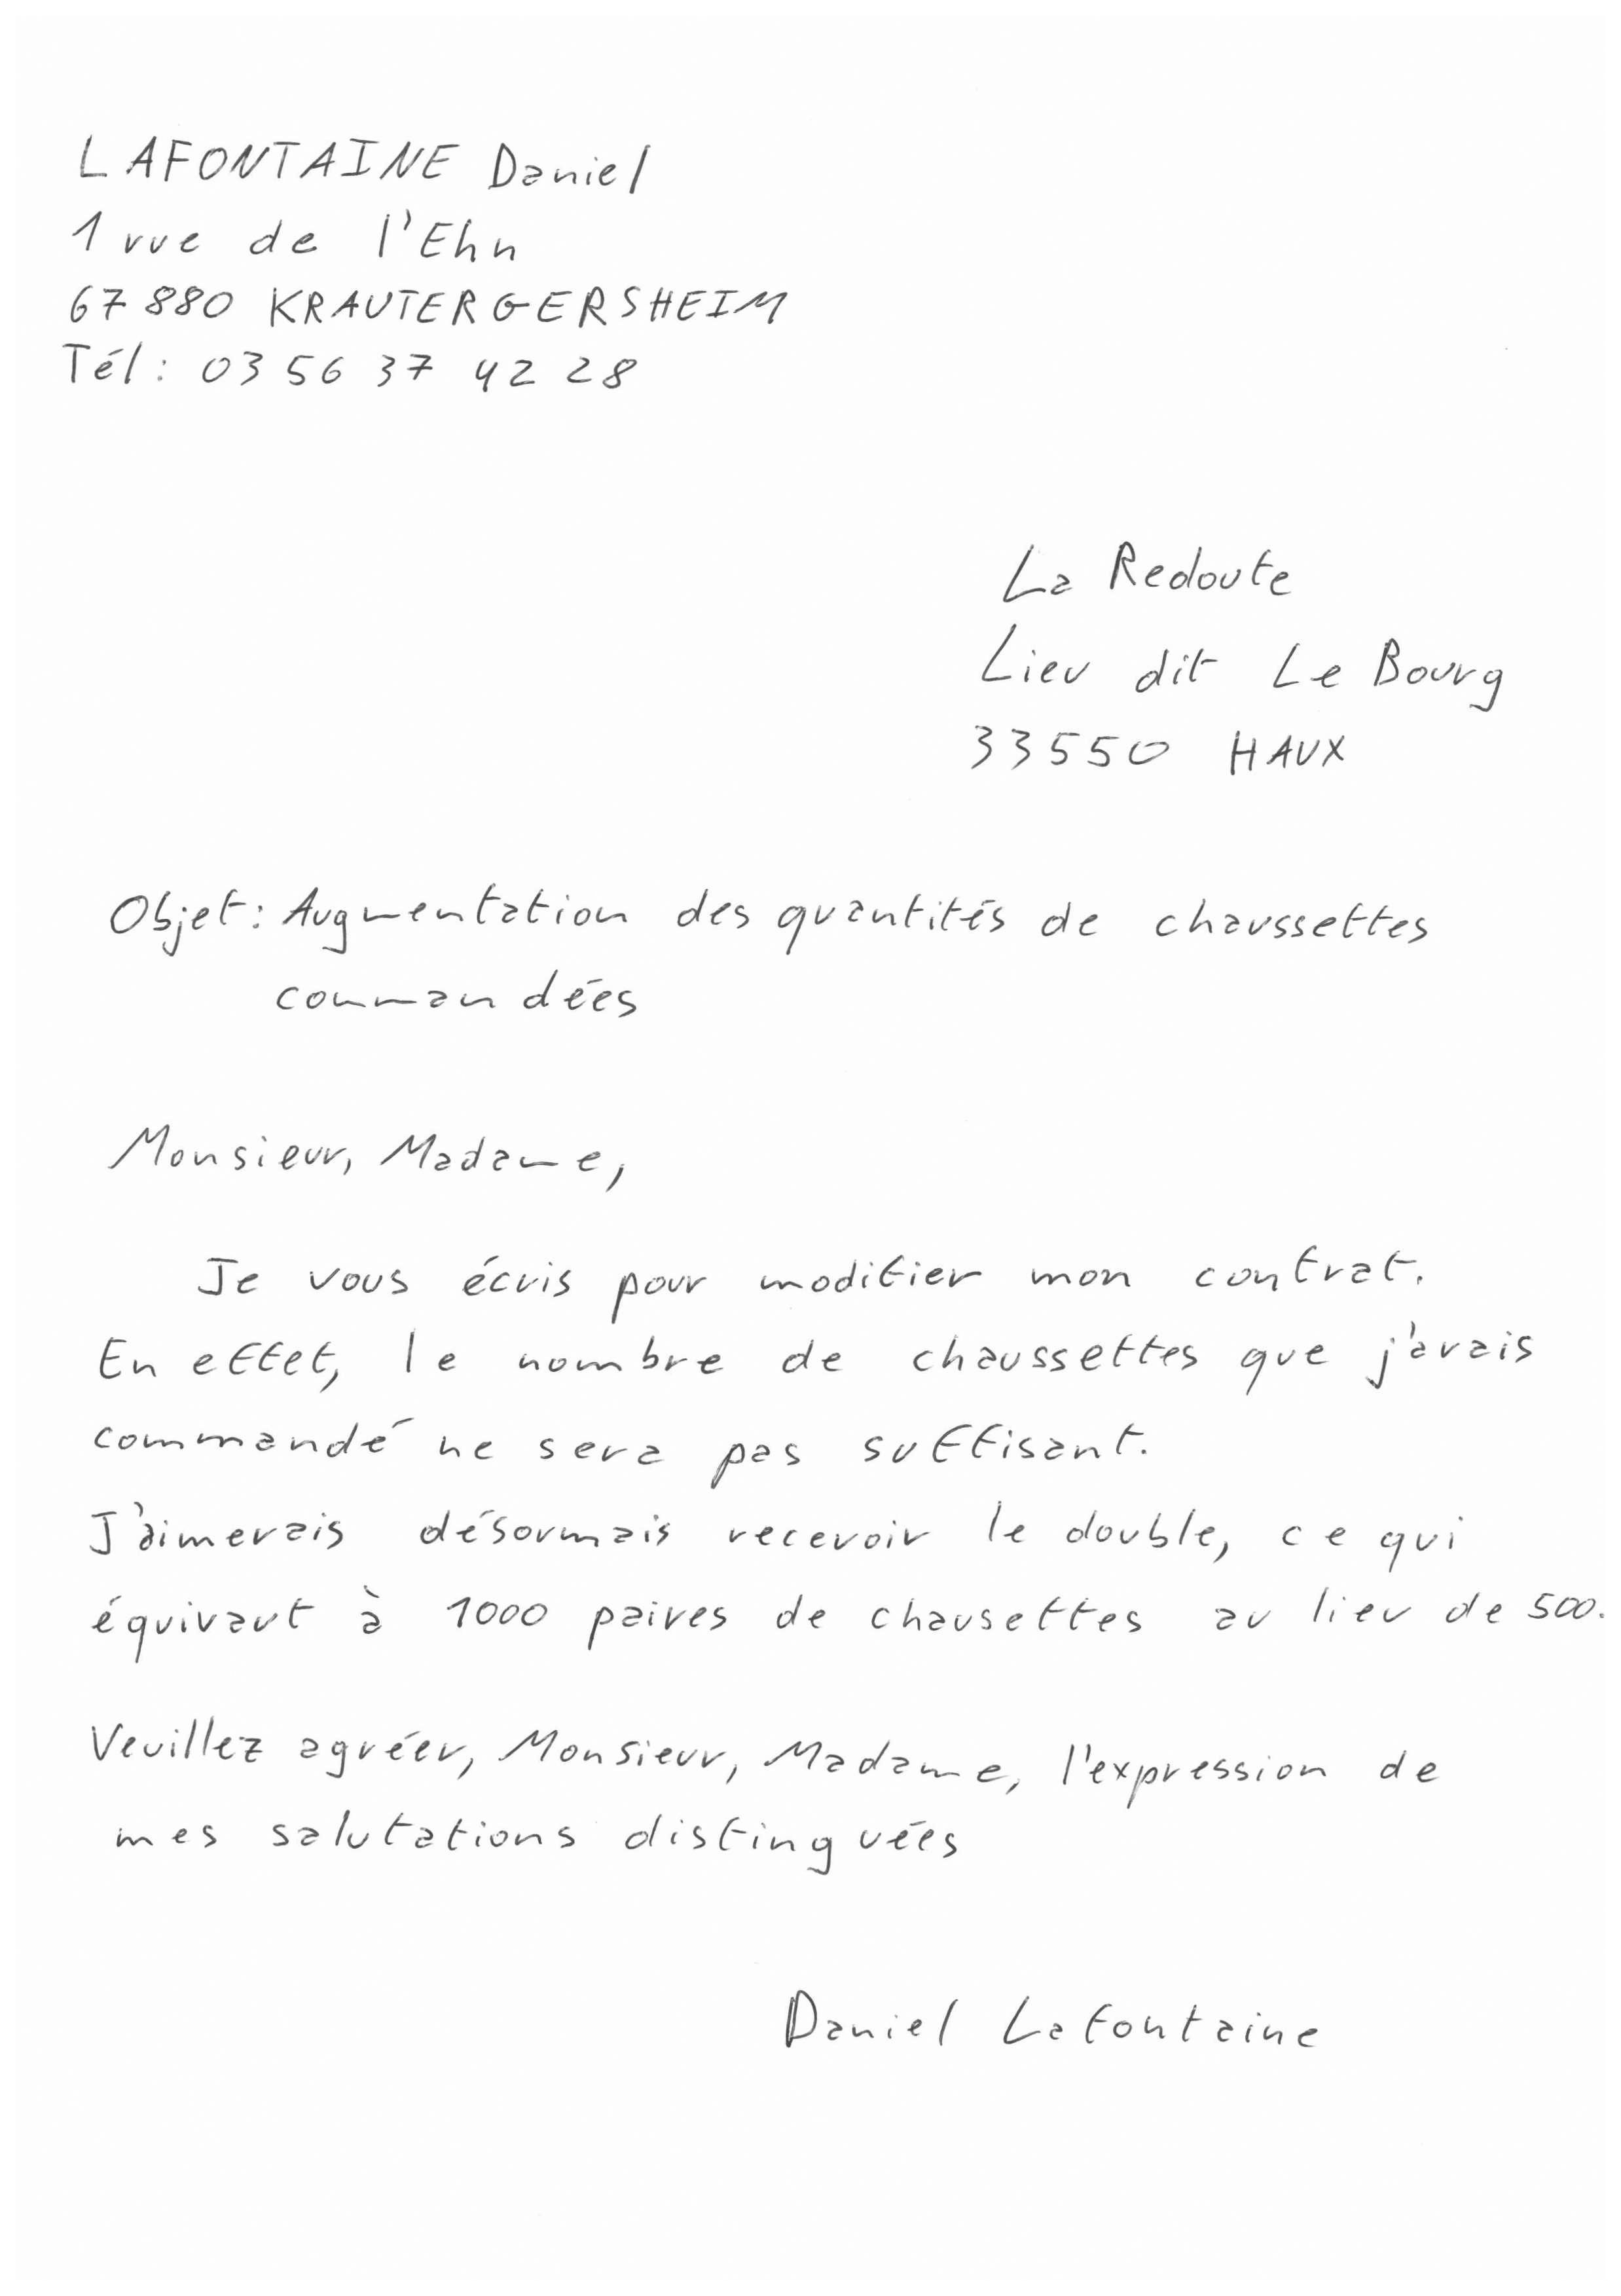 LAFONTAINE Daniel
1 rue de l'Ehn
67880 KRAUTERGERSHEIM
Tél : 03 56 37 42 28
La Redoute
Lieu dit Le Bourg
33550 HAUX
Objet : Augmentation des quantités de chaussettes
commandées
Monsieur, Madame,
Je vous écris pour modifier mon contrat.
En effet, le nombre de chaussettes que j'avais
commandé ne sera pas suffisant.
J'aimerais désormais recevoir le double, ce qui
équivaut à 1000 paires de chausettes au lieu de 500.
Veuillez agréer, Monsieur, Madame, l'expression de
mes salutations distinguées
Daniel Lafontaine